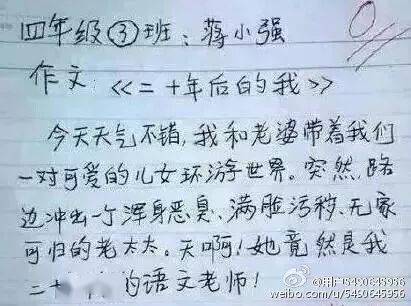 四年级③班：蒋小强
作文：《二十年后的我》
今天天气不错，我和老婆带着我们
一对可爱的儿女环游世界。突然，路
边冲出一个浑身恶臭、满脸污秽、无家
可归的老太太。天啊！她竟然是我
二十 的语文老师！
0
@用户5490645956
weibo.com/u/5490645956